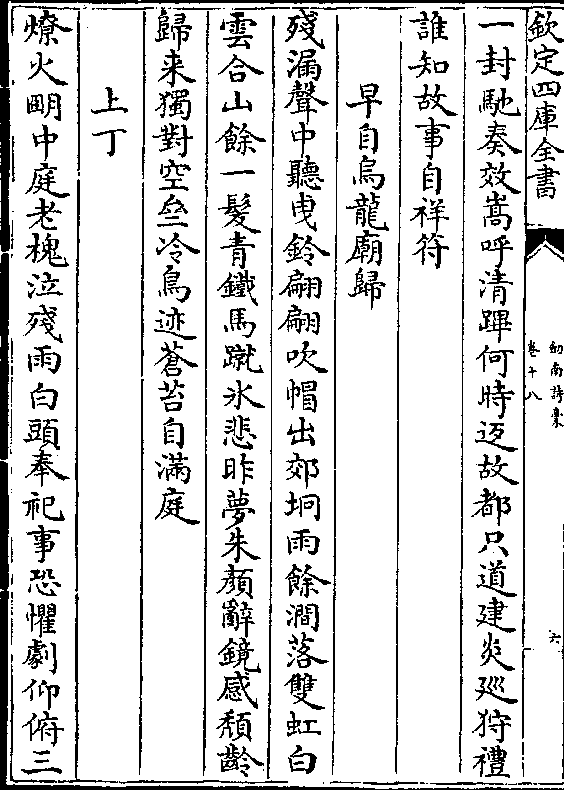 欽定四庫全書
劍南詩稾
卷十八
六
一封馳奏效嵩呼清蹕何時返故都只道建炎廵狩禮
誰知故事自祥符
早自烏龍廟歸
殘漏聲中聽曳鈴翩翩吹帽出郊坰雨餘澗落雙虹白
雲合山餘一髮青鐵馬蹴氷悲昨夢朱顔辭鏡感頽齡
歸来獨對空垒冷鳥迹蒼苔自滿庭
上丁
燎火明中庭老槐泣殘雨白頭奉祀事恐懼劇仰俯三